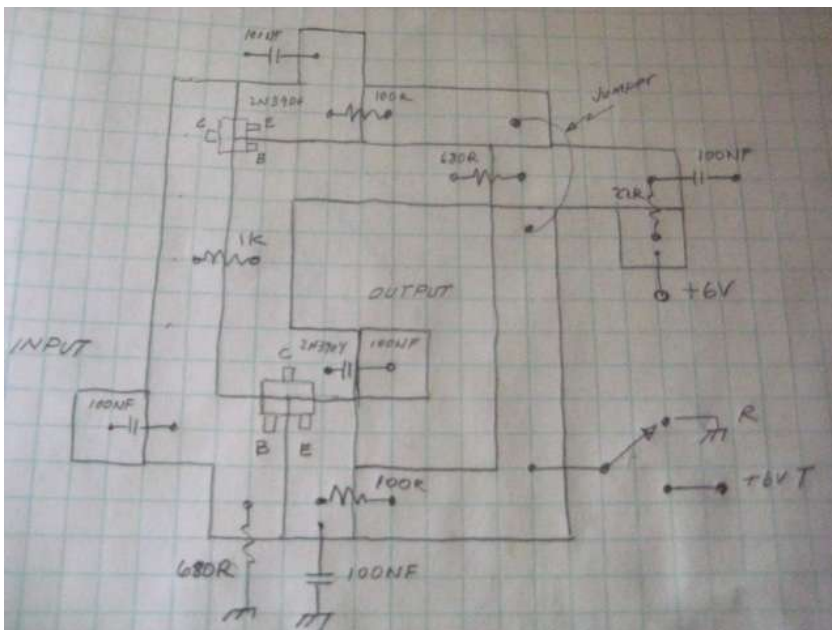 100NF
Jumper
2N3904
100R
C
E
B
680R
100NF
22R
1K
+6V
OUTPUT
INPUT
C
2N3904
100NF
100NF
B
E
R
100R
+6V T
680R
100NF